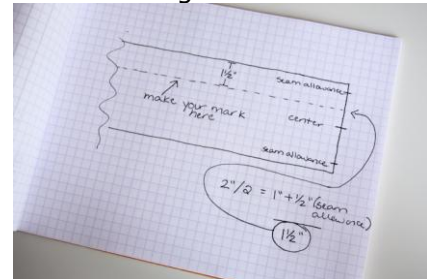 1½"
seam allowance
make your mark
here
center
seam allowance
2"/2 = 1" + ½" (seam
allowance)
1½"